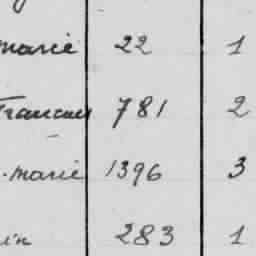 marie 22 1
Francois 781 2
-marie 1396 3
in 283 1